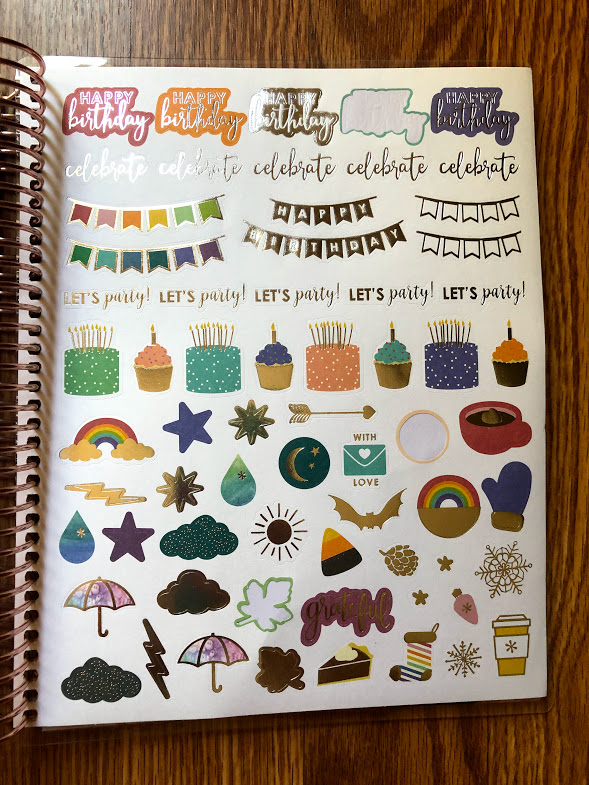 HAPPY birthday HAPPY birthday HAPPY birthday HAPPY birthday
celebrate celebrate celebrate celebrate celebrate
HAPPY
BIRTHDAY
LET'S party! LET'S party! LET'S party! LET'S party! LET'S party!
WITH
LOVE
grateful